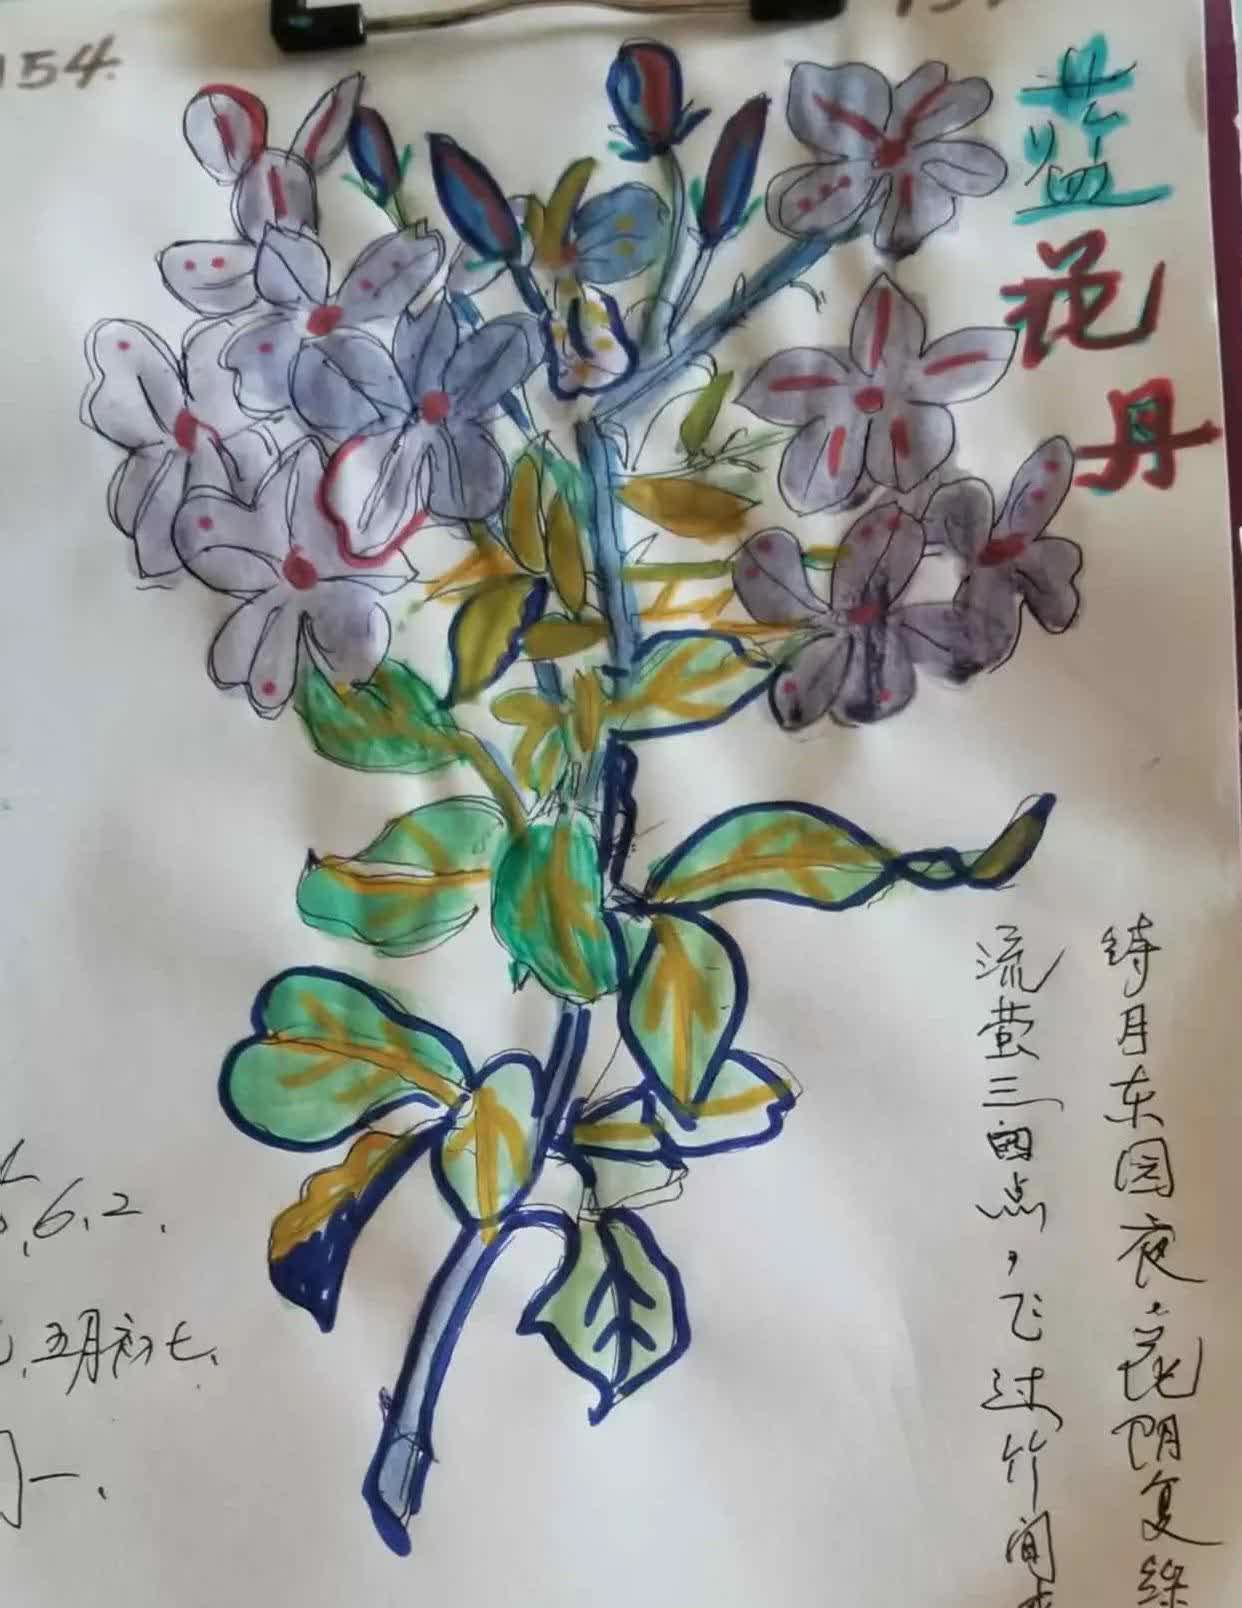 154.
蓝花丹
待月东园夜,花阴复绿
流萤三四点,飞过竹间
6.2.
五月初七.
一.